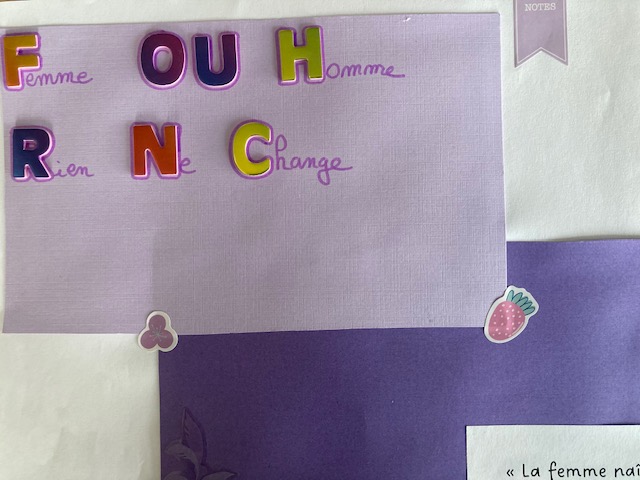 NOTES
Femme OU Homme
Rien Ne Change
« La femme naî